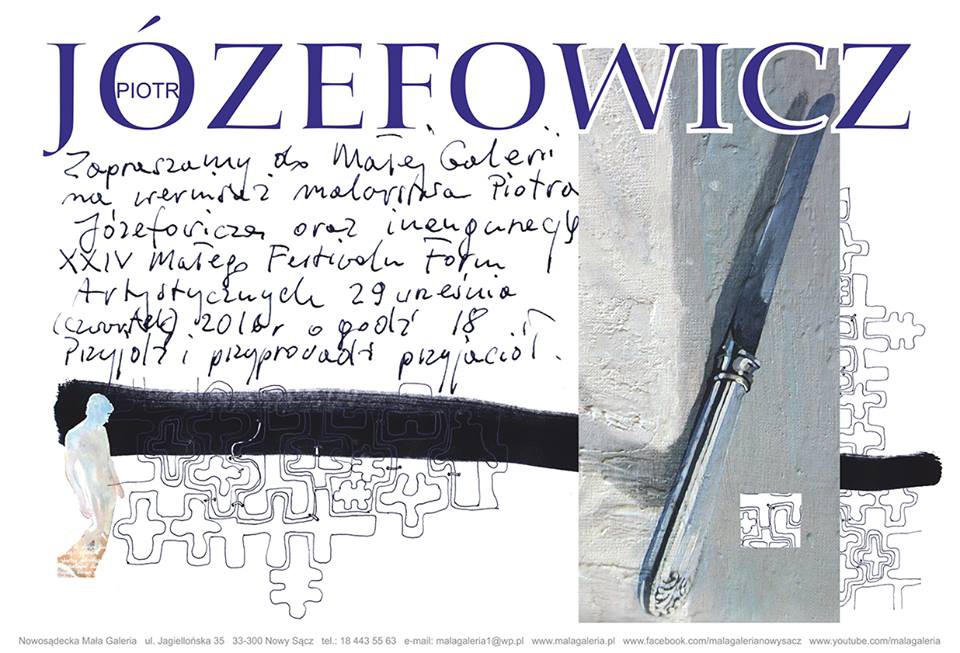 JÓZEFOWICZ
PIOTR
Zapraszamy do Małej Galerii
na wernisaż malarstwa Piotra
Józefowicza, oraz inaugurację
XXIV Małego Festiwalu Form
Artystycznych 29 września
(czwartek) 2016r o godz 18
Przyjdź i przyprowadź przyjaciół.
Nowosądecka Mała Galeria ul. Jagiellońska 35 33-300 Nowy Sącz tel.: 18 443 55 63 e-mail: malagaleria1@wp.pl www.malagaleria.pl www.facebook.com/malagalerianowysacz www.youtube.com/malagaleria